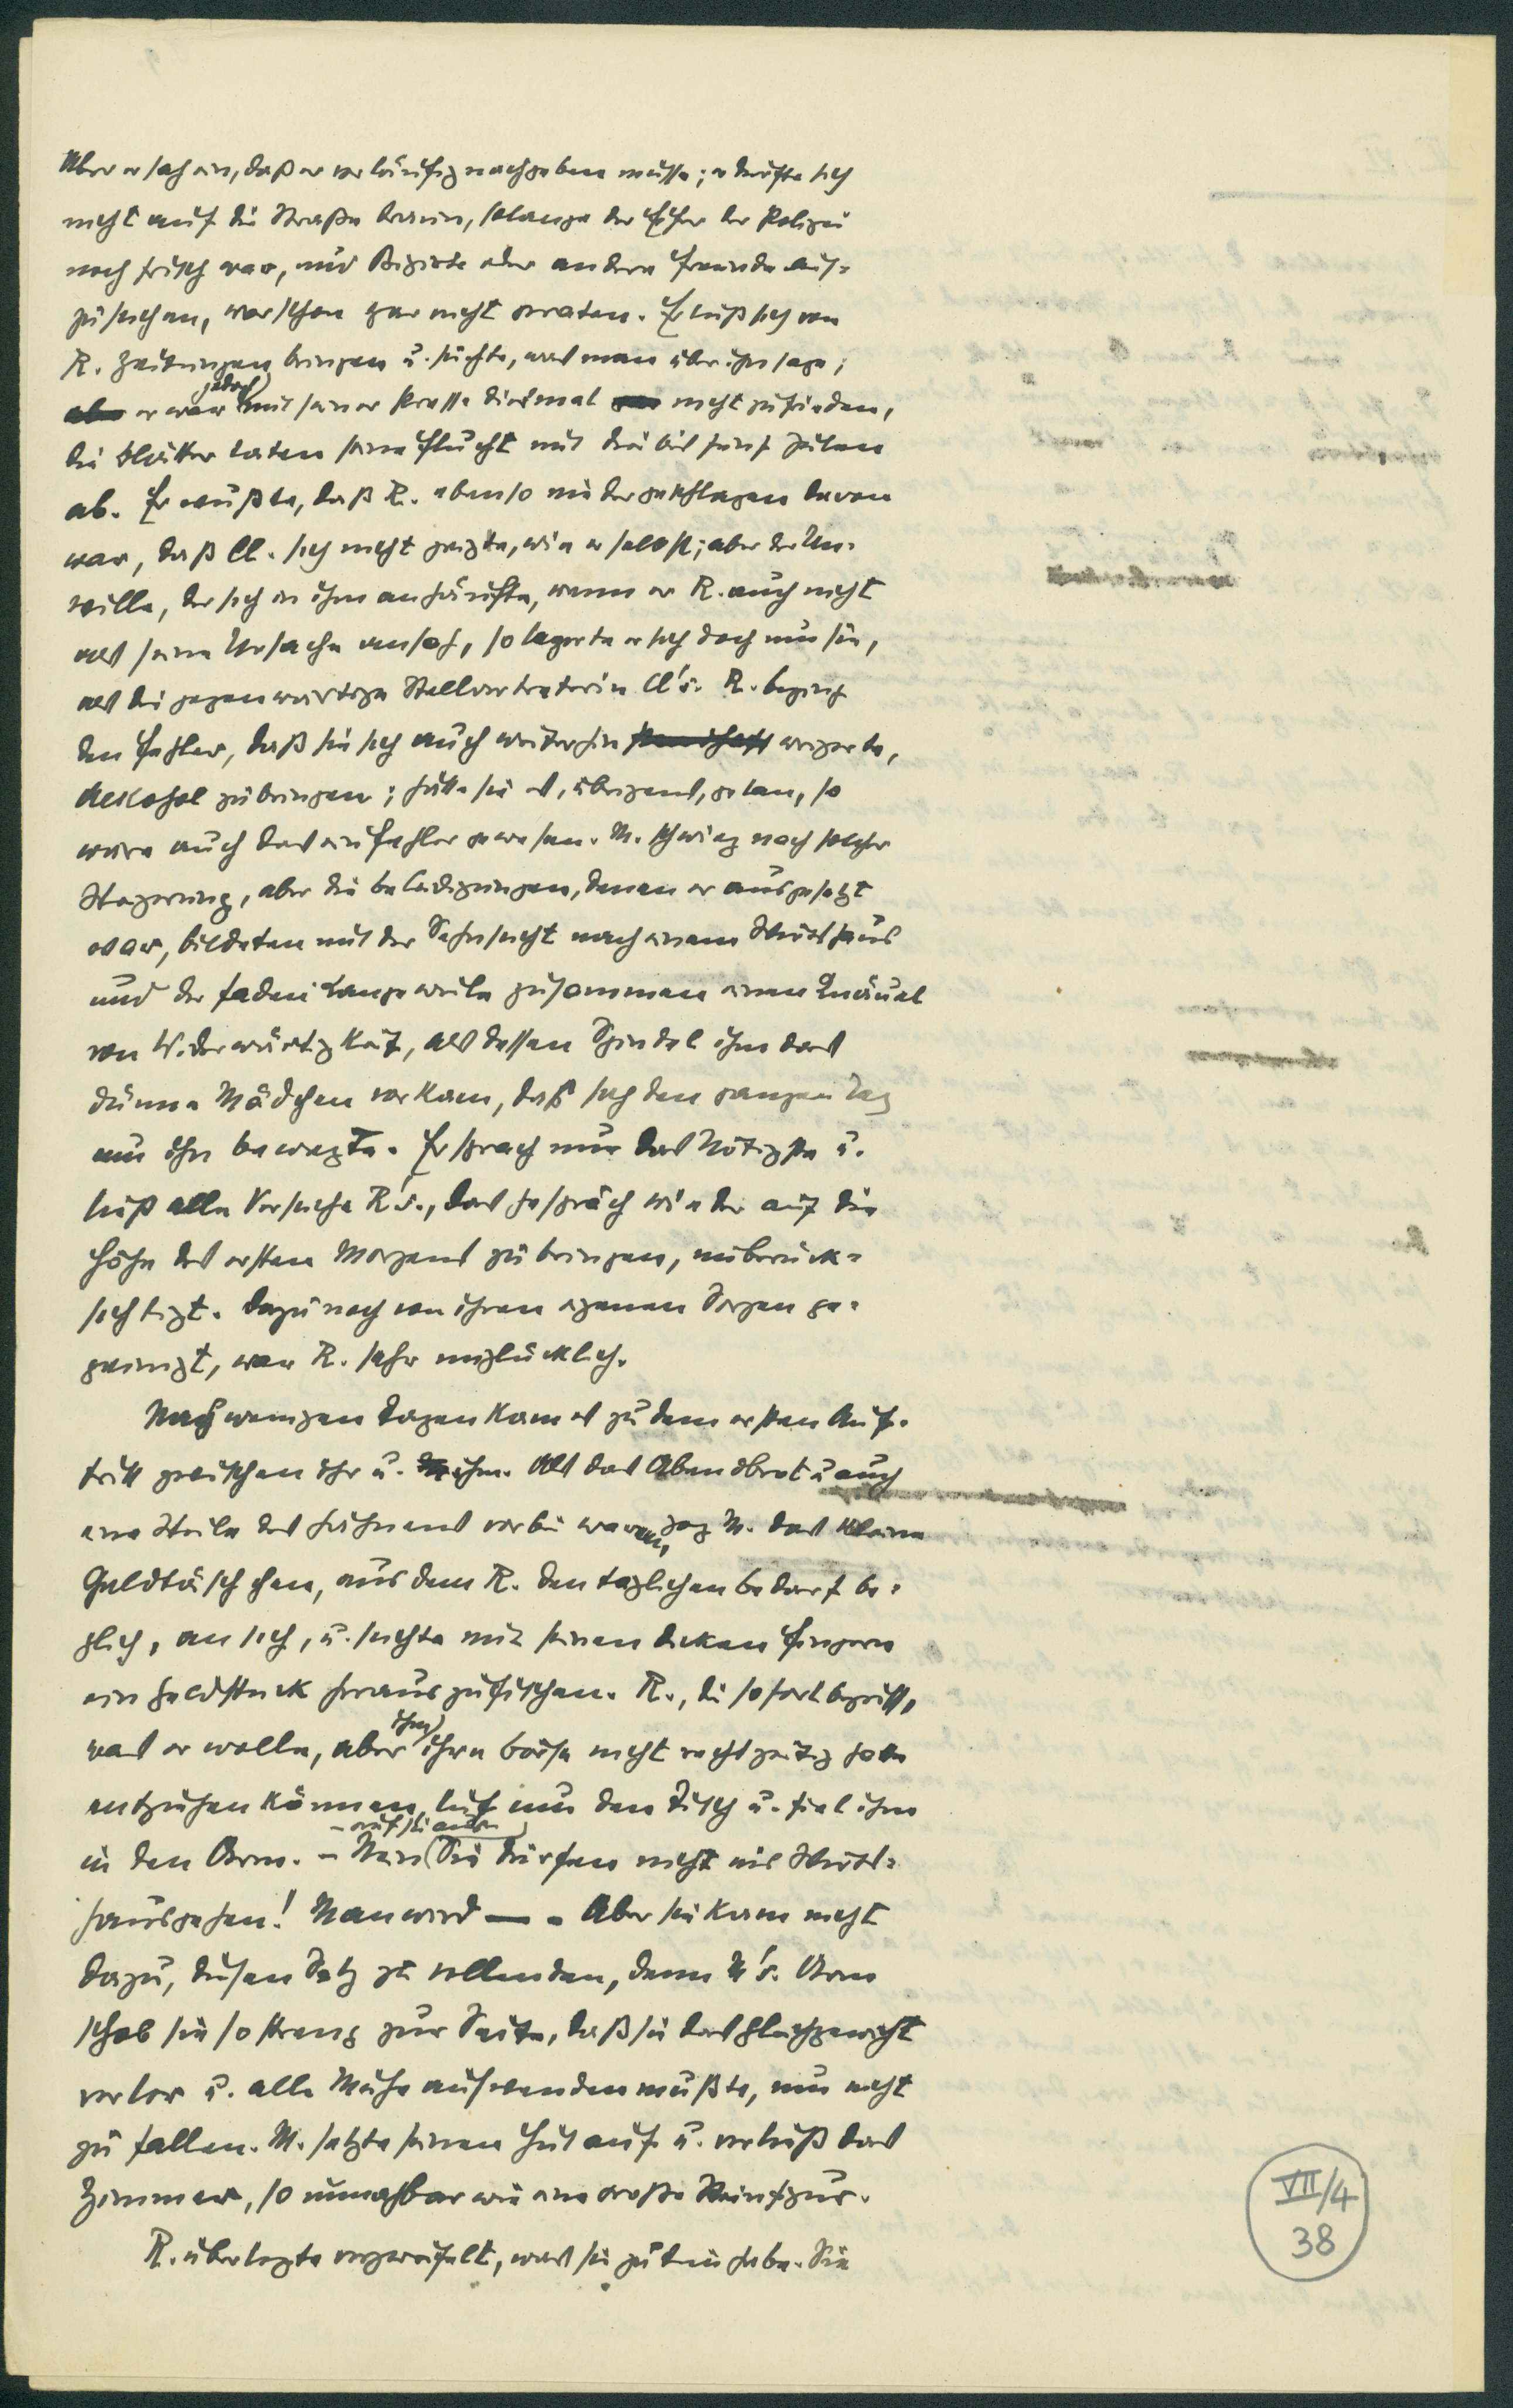 Aber er sah ein, daß er vorläufig nachgeben müsse; er durfte sich
nicht auf die Straße trauen, solange der Eifer der Polizei
noch frisch war, und Biziste oder andere Freunde auf-
zusuchen, war schon gar nicht geraten. Er ließ sich von
R. Zeitungen bringen u. suchte, was man über ihn sage;
aber er war jedoch mit seiner Presse diesmal gar nicht zufrieden,
die Blätter taten seine Flucht mit drei bis fünf Zeilen
ab. Er wußte, daß R. ebenso niedergeschlagen davon
war, daß Cl. sich nicht zeigte, wie er selbst; aber der Un-
wille, der sich in ihm anhäufte, wenn er R. auch nicht
als seine Ursache ansah, so lagerte er sich doch um sie,
als die gegenwärtige Stellvertreterin Cl's. R. beging
den Fehler, daß sie sich auch weiterhin weigerte,
Alkohol zu bringen; hätte sie es, übrigens, getan, so
wäre auch das ein Fehler gewesen. M. schwieg nach solcher
Weigerung, aber die Beleidigungen, denen er ausgesetzt
war, bildeten mit der Sehnsucht nach einem Wirtshaus
und der faden Langeweile zusammen einen Knäuel
von Widerwärtigkeit, als dessen Spindel ihm das
dünne Mädchen vorkam, daß sich den ganzen Tag
um ihn bewegte. Er sprach nur das Nötigste u.
ließ alle Versuche R's., das Gespräch wieder auf die
Höhe des ersten Morgens zu bringen, unberück-
sichtigt. Dazu noch von ihren eigenen Sorgen ge-
peinigt, war R. sehr unglücklich.
Nach wenigen Tagen kam es zu dem ersten Auf-
tritt zwischen ihr u. ihm. Als das Abendbrot u auch
eine Weile des Gähnens vorbei waren, zog M. das kleine
Geldtäschchen, aus dem R. den täglichen Bedarf be-
glich, an sich, u. suchte mit seinen dicken Fingern
ein Geldstück herauszufischen. R., die sofort begriff,
was er wolle, aber ihm ihre Börse nicht rechtzeitig hatte
entziehen können, lief um den Tisch u. fiel ihm
in den Arm. – Nein – rief sie aus – Sie dürfen nicht ins Wirts-
haus gehen! Man wird — – Aber sie kam nicht
dazu, diesen Satz zu vollenden, denn M's. Arm
schob sie so streng zur Seite, daß sie das Gleichgewicht
verlor u. alle Mühe aufwenden mußte, um nicht
zu fallen. M. setzte seinen Hut auf u. verließ das
Zimmer, so unnahbar wie eine große Steinfigur.
R. überlegte verzweifelt, was sie zu tun habe. Sie
VII/4
38